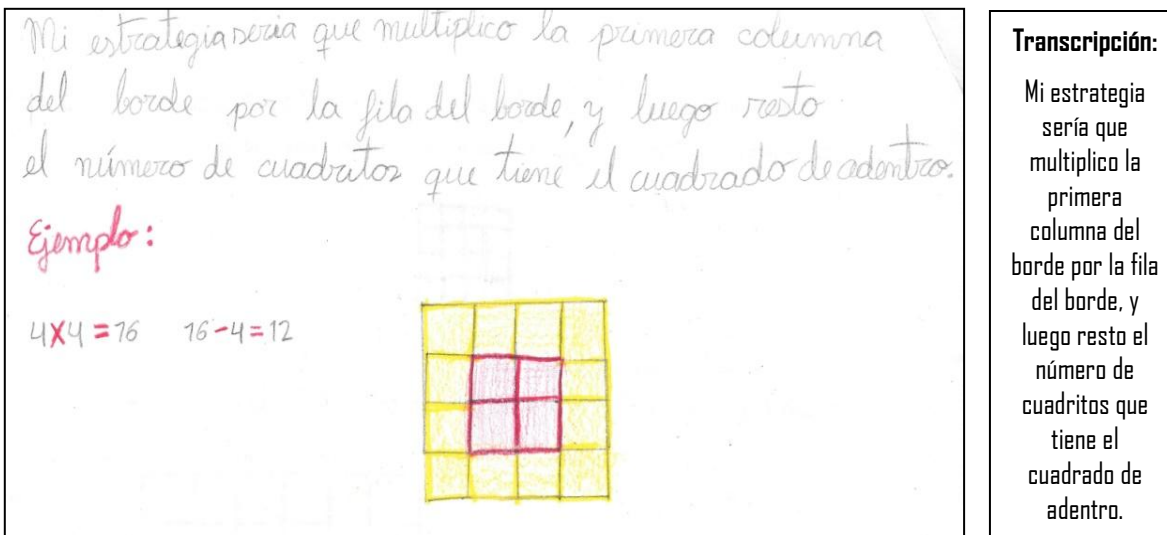 Mi estrategia seria que multiplico la primera columna
del borde por la fila del borde, y luego resto
el número de cuadritos que tiene el cuadrado de adentro.
Ejemplo:
4x4=16 16-4=12
Transcripción:
Mi estrategia
sería que
multiplico la
primera
columna del
borde por la fila
del borde, y
luego resto el
número de
cuadritos que
tiene el
cuadrado de
adentro.